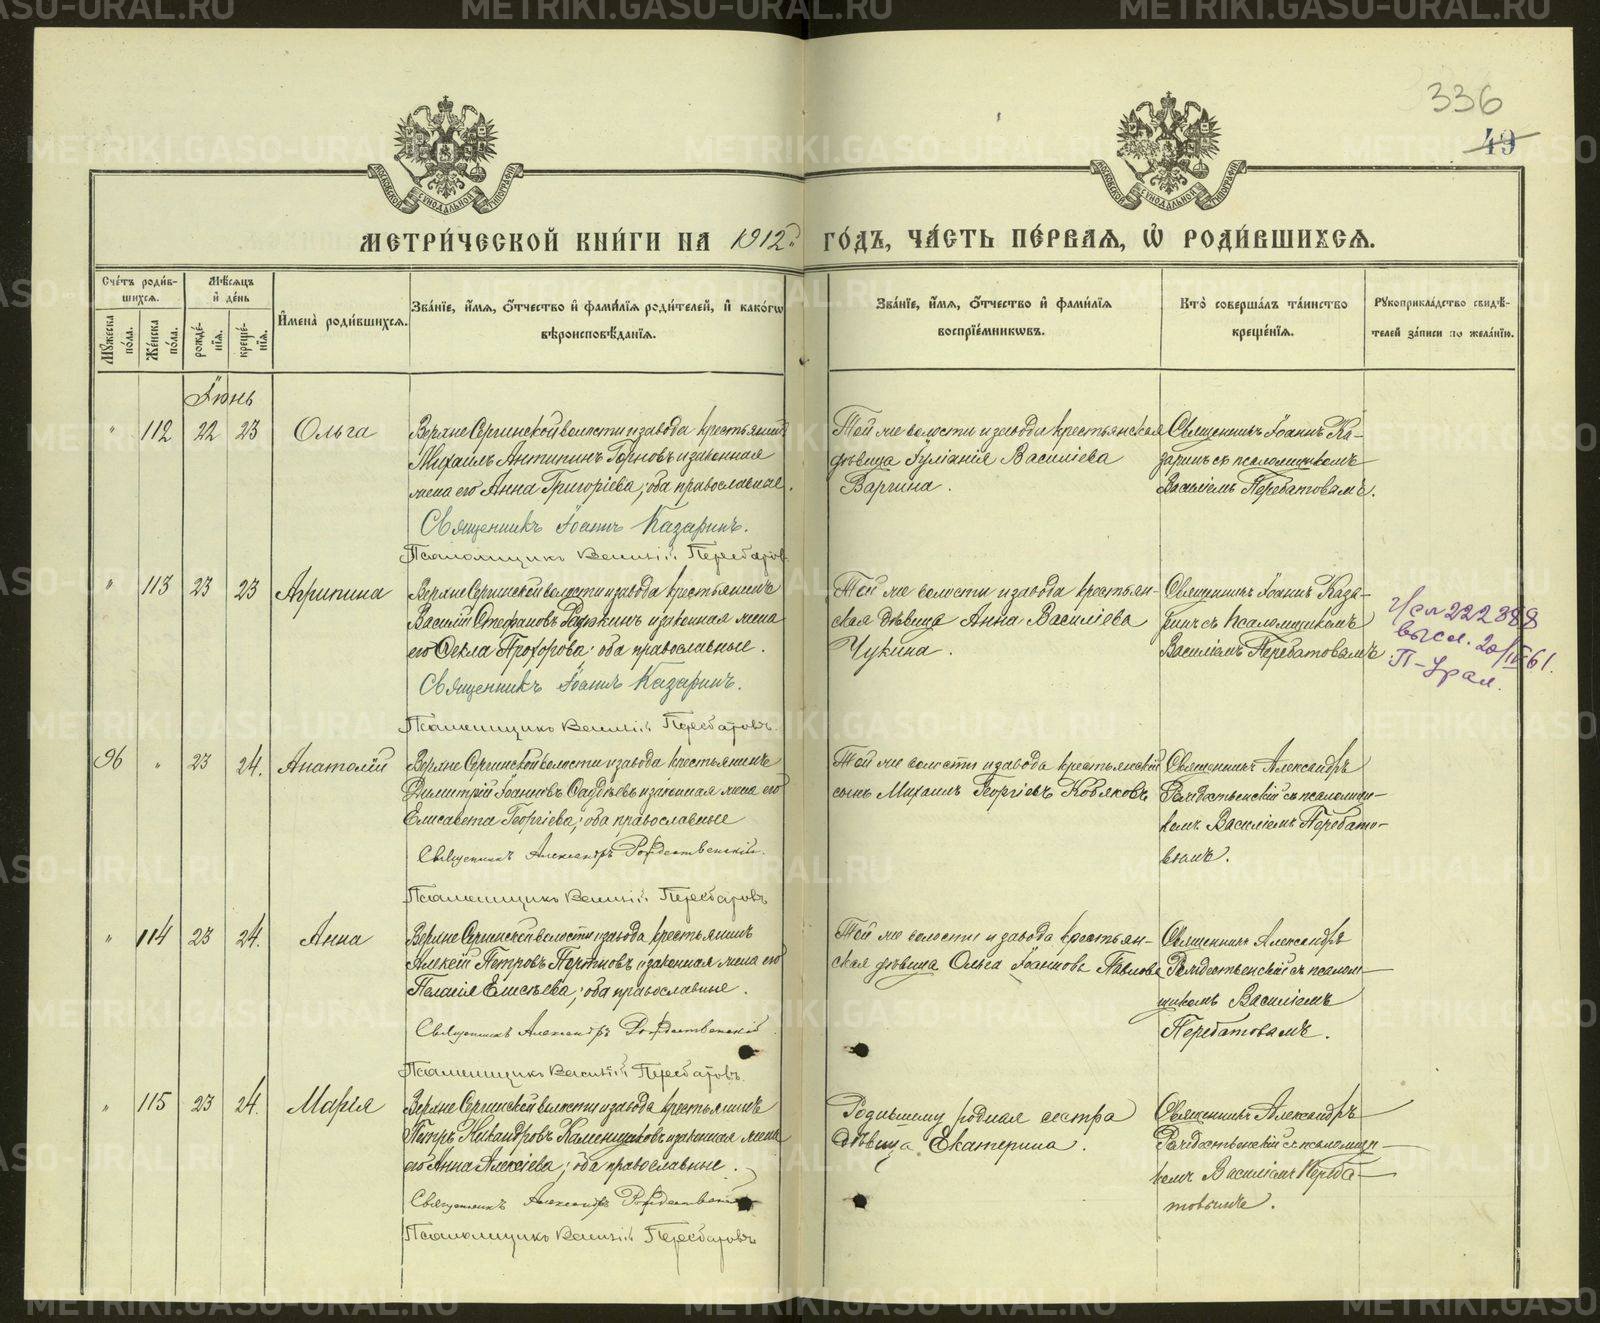 336
49
МОСКОВСКОЙ СѴНОДАЛЬНОЙ ТИПОГРАФІИ
МОСКОВСКОЙ СѴНОДАЛЬНОЙ ТИПОГРАФІИ
МЕТРИ́ЧЕСКОЙ КНИ́ГИ НА 1912й ГО́ДЪ, ЧА́СТЬ ПЕ́РВАЯ, Ѡ҆ РОДИ́ВШИХСЯ.
Сче́тъ роди́в-
шихся.
Мѣ́сяцъ
и҆ де́нь
Мꙋ́жеска по́ла.
Же́нска по́ла.
рожде́-
нїя.
креще́-
нїя.
И҆мена̀ роди́вшихся.
Зва́нїе, и҆́мя, ѻ҆́тчество и҆ фами́лїя роди́телей, и҆ како́гѡ
вѣроисповѣ́данїя.
Зва́нїе, и҆́мя, ѻ҆́тчество и҆ фами́лїя
воспрїе́мникѡвъ.
Кто̀ соверша́лъ та́инство
креще́нїя.
Рꙋкоприкла́дство свидѣ́-
телей за́писи по жела́нїю.
Іюнь
" 112 22 23 Ольга
Верхне Сергинской волости и завода крестьянинъ
Михаилъ Антипинъ Горновъ и законная
жена его Анна Григоріева; оба православные.
Священникъ Іоаннъ Казаринъ.
Псаломщикъ Василій Перебатовъ
Той же волости и завода крестьянская
дѣвица Іуліанія Василіева
Варгина.
Священникъ Іоаннъ Ка-
заринъ съ псаломщикомъ
Василіемъ Перебатовымъ.
" 113 23 23 Агрипина
Верхне Сергинской волости и завода крестьянинъ
Василій Стефановъ и законная жена
его Ѳекла Прохорова; оба православные.
Священникъ Іоаннъ Казаринъ.
Псаломщикъ Василій Перебатовъ.
Той же волости и завода крестьян-
ская дѣвица Анна Василіева
Чукина.
Священникъ Іоаннъ Каза-
ринъ съ псаломщикомъ
Василіемъ Перебатовымъ
222888
высл. 20/IV 61.
П-Урал.
96 " 23 24. Анатолій
Верхне Сергинской волости и завода крестьянинъ
Димитрій Іоанновъ Ѳаддѣевъ и законная жена его
Елисавета Георгіева; оба православные
Священникъ Александръ Рождественскій.
Псаломщикъ Василій Перебатовъ
Той же волости и завода крестьянскій
сынъ Михаилъ Георгіевъ Кобяковъ
Священникъ Александръ
Рождественскій съ псаломщи-
комъ Василіемъ Перебато-
вымъ.
" 114 23 24. Анна
Верхне Сергинской волости и завода крестьянинъ
Алексій Петровъ Портновъ и законная жена его
Пелагія Елисѣева; оба православные.
Священникъ Александръ Рождественскій.
Псаломщикъ Василій Перебатовъ.
Той же волости и завода крестьян-
ская дѣвица Ольга Іоаннова Павлова
Священникъ Александръ
Рождественскій съ псалом-
щикомъ Василіемъ
Перебатовымъ.
" 115 23 24. Марія
Верхне Сергинской волости и завода крестьянинъ
Петръ Никандровъ Каменщиковъ и законная жена
его Анна Алексіева; оба православные.
Священникъ Александръ Рождественскій
Псаломщикъ Василій Перебатовъ
Родившему родная сестра
дѣвица Екатерина.
Священникъ Александръ
Рождественскій съ псаломщи-
комъ Василіемъ Переба-
товымъ.
METRIKI.GASO-URAL.RU